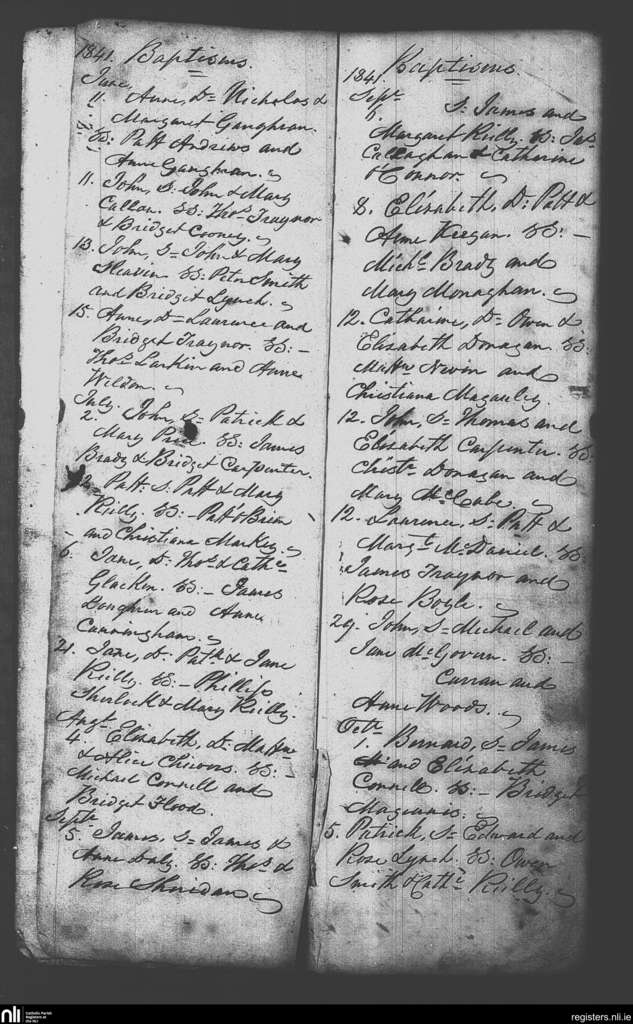 1841. Baptisms.
June,
11. Anne, D= Nicholas &
Margaret Ganghran.
SS: Patt Andrews and
Anne Ganghran.
11. John, S: John & Mary
Callan. SS: Thos Traynor
& Bridget Cooney.
13. John, S= John & Mary
Heaven SS: Peter Smith
and Bridget Lynch.
15. Anne, D= Laurence and
Bridget Traynor. SS:-
Thos Larkin and Anne
Wilson.
July.
2. John, S= Patrick &
Mary Rice. SS: James
Brady & Bridget Carpenter.
Patt: S. Patt & Mary
Reilly. SS:- Patt O'Brien
and Christiana Markey.
6. Jane, D: Thos & Cathe
Glacken. SS:- James
and Anne
Cunningham.
21. Jane, D: Patk & Jane
Reilly. SS:- Phillip
Sherlock & Mary Reilly.
Augt
4. Elizabeth, D: Mattw
& Alice Chivors. SS:-
Michael Connell and
Bridget Flood.
Septr
5. James, S= James &
Anne Daly. SS: Thos &
Rose Sheridan
1841. Baptisms.
Septr
S: James and
Margaret Reilly. SS: Jas
Callaghan & Catherine
O'Connor.
8. Elizabeth, D: Patt &
Anne Keegan. SS:-
Michl Brady and
Mary Monaghan.
12. Catharine, D= Owen &
Elizabeth Donagan. SS:
Mattw Nevin and
Christiana Magauley.
12. John, S= Thomas and
Elizabeth Carpenter. SS:
Christr Donagan and
Mary McCabe.
12. Laurence, S: Patt &
Margt McDaniel. SS:
James Traynor and
Rose Boyle.
29. John, S= Michael and
Jane McGovern. SS:-
Curran and
Anne Woods.
Octr
1. Bernard, S= James
and Elizabeth
Connell. SS:- Bridget
Magennis.
5. Patrick, S= Edward and
Rose Lynch. SS: Owen
Smith & Cathe Reilly.
nli
Catholic Parish
Registers at
the NLI
registers.nli.ie